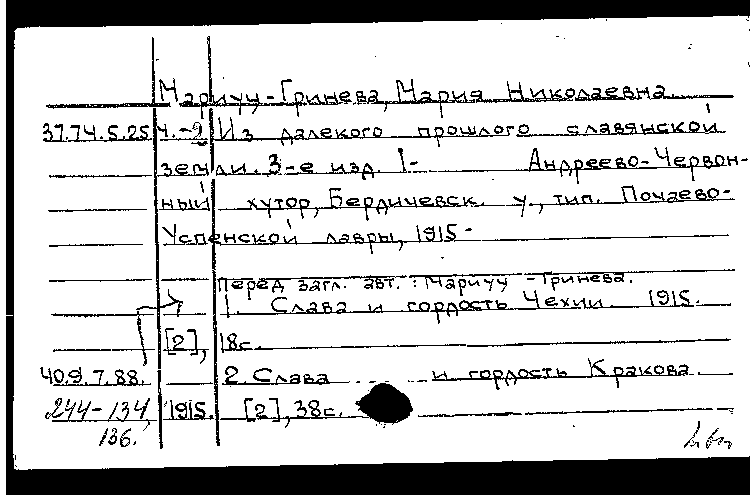 Мариуц-Гринева, Мария Николаевна.
37.74.5.25 4.-9 Из далекого прошлого славянской
земли. 3-е изд. 1- Андреево-Червон-
ный хутор, Бердичевск. у., тип. Почаево-
Успенской лавры, 1915-
Перед загл. авт.: Мариуц-Гринева.
1. Слава и гордость Чехии. 1915.
[2], 18с.
40.9.7.88. 2. Слава и гордость Кракова.
244-134, 1915. [2], 38с.
136.